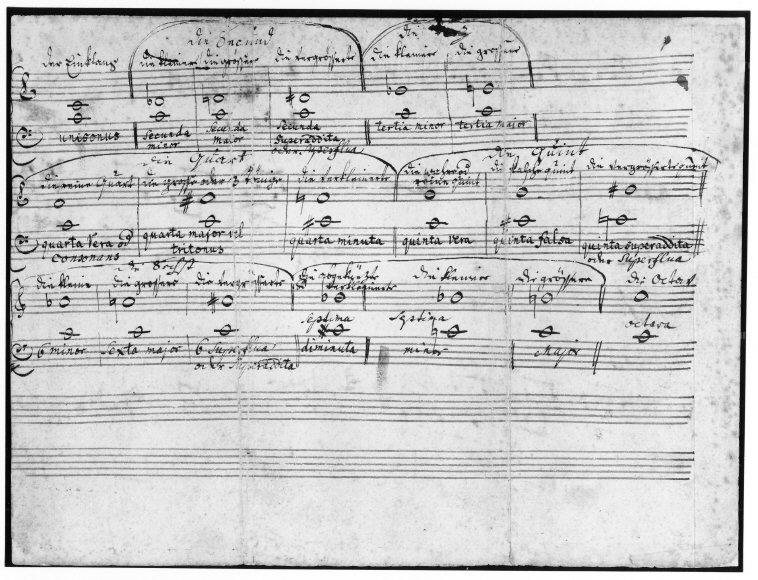 die Secund die
der Einklang die kleinere die grössere die vergrösserte die kleinere die grössere
unisonus secunda minor secunda maior secunda superaddita oder superflua tertia minor tertia major
die Quart die Quint
die reine Quart die grosse oder 3 tönige die verkleinerte die reine Quint die falsche quint die vergrösserte quint
quarta vera od consonans quarta major vel tritonus quarta minuta quinta vera quinta falsa quinta superaddita oder superflua
die Sechst
die kleine die grössere die vergrösserte die verkleinerte die kleinere die grössere die Octav
septima septima octava
6 minor Sexta major 6 superflua oder superaddita diminuta minor major